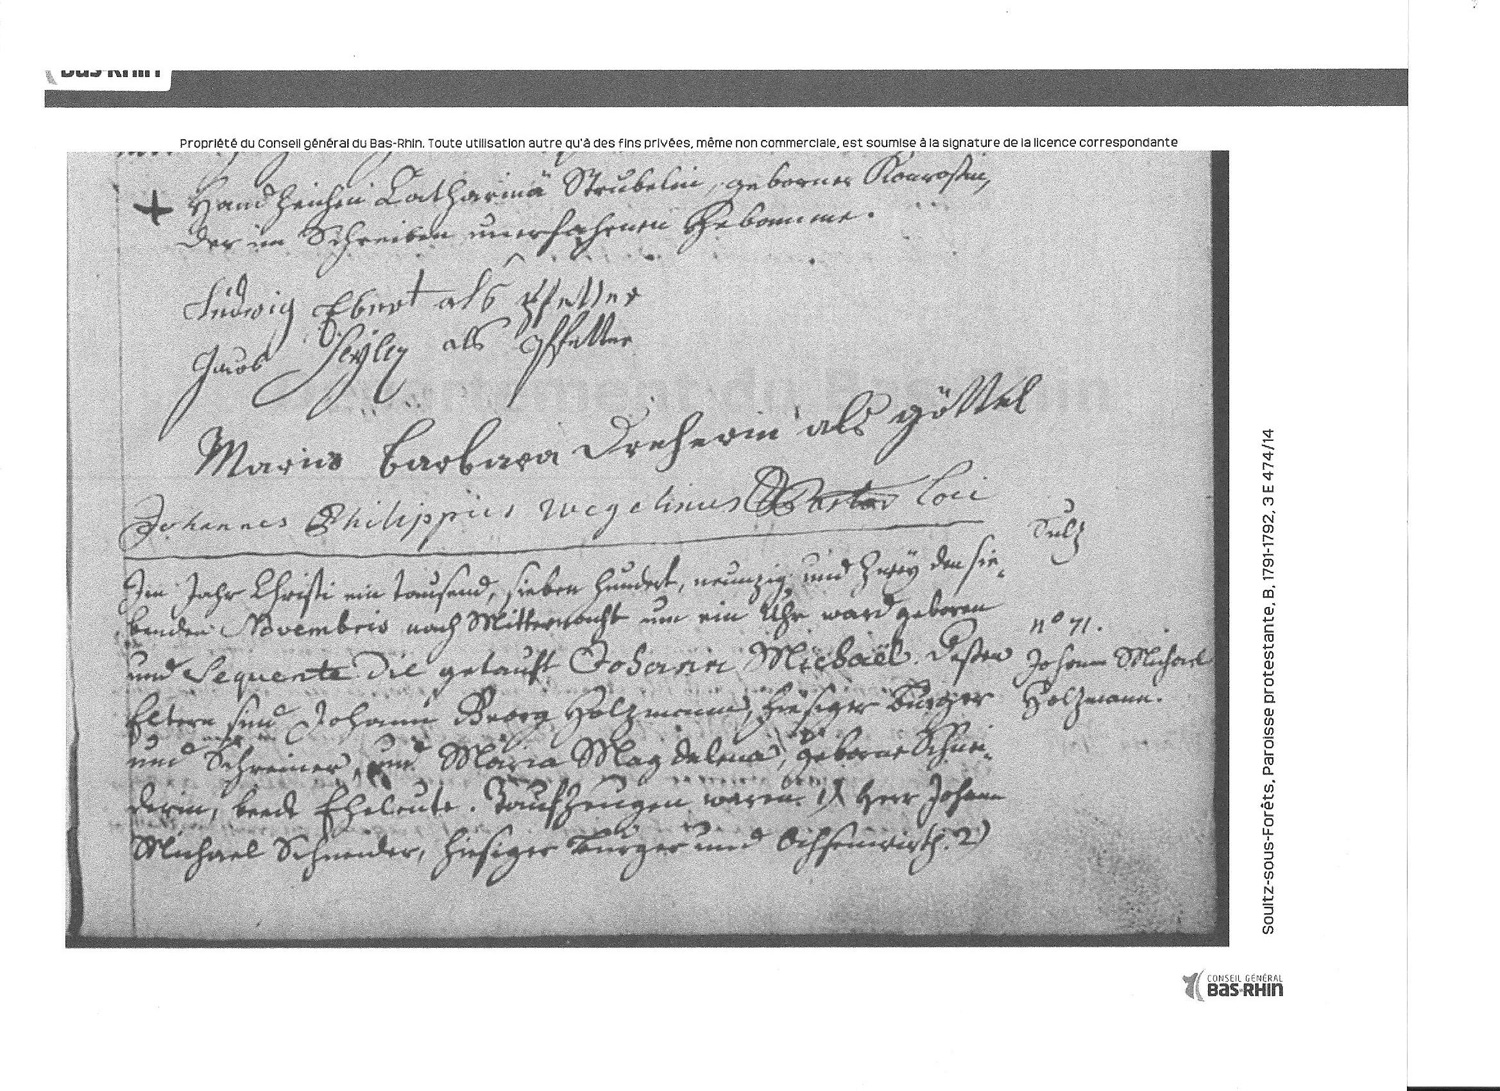 Bas-Rhin
Propriété du Conseil général du Bas-Rhin. Toute utilisation autre qu'à des fins privées, même non commerciale, est soumise à la signature de la licence correspondante
Handzeichen Catharinä Strubelin, geborner
der im Schreiben unerfahrnen Hebamme.
Ludwig Ebert als Pfetter
Jacob als Pfetter
Maria Barbara Dreherin als göttel
Johannes Philippus Wegelinus Pastor loci
Sulz
Im Jahr Christi ein tausend, sieben hundert, neunzig und Zwey den sie-
benden Novembris nach Mitternacht um ein Uhr ward geboren
und Sequente die getauft Johann Michael. Dessen
Eltern sind Johann Georg Holzmann, hiesiger Burger
und Schreiner, und Maria Magdalena, geborne Schnei-
derin, beede Eheleute. Taufzeugen waren 1) Herr Johann
Michael Schneider, hiesiger Burger und Ochsenwirth. 2)
nº 71.
Johann Michael
Holzmann.
Département du Bas-Rhin
Soultz-sous-Forêts, Paroisse protestante, B, 1791-1792, 3 E 474/14
CONSEIL GÉNÉRAL
Bas-Rhin